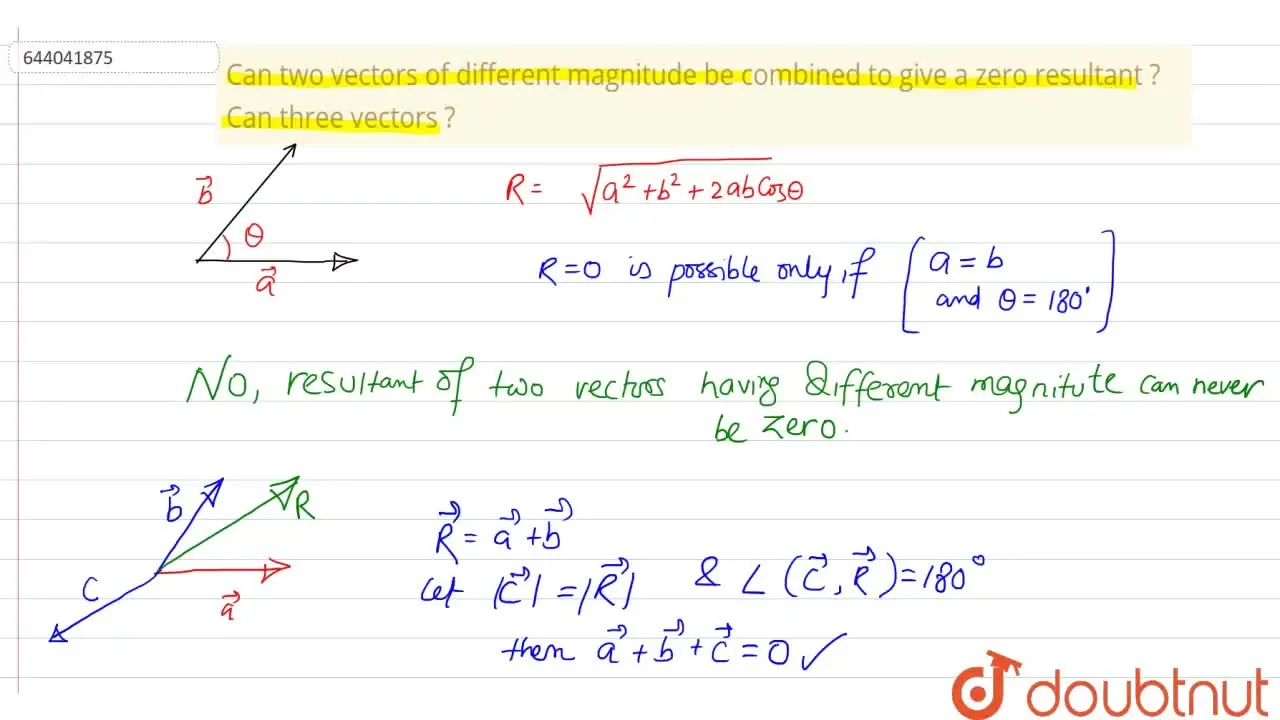 644041875
Can two vectors of different magnitude be combined to give a zero resultant ?
Can three vectors ?
b⃗
θ
a⃗
R = √(a² + b² + 2ab Cosθ)
R = 0 is possible only if [a = b
and θ = 180°]
No, resultant of two vectors having different magnitute can never
be zero.
b⃗
R
C
a⃗
R⃗ = a⃗ + b⃗
let |C⃗| = |R⃗| & ∠ (C⃗, R⃗) = 180°
then a⃗ + b⃗ + c⃗ = 0 ✓
doubtnut